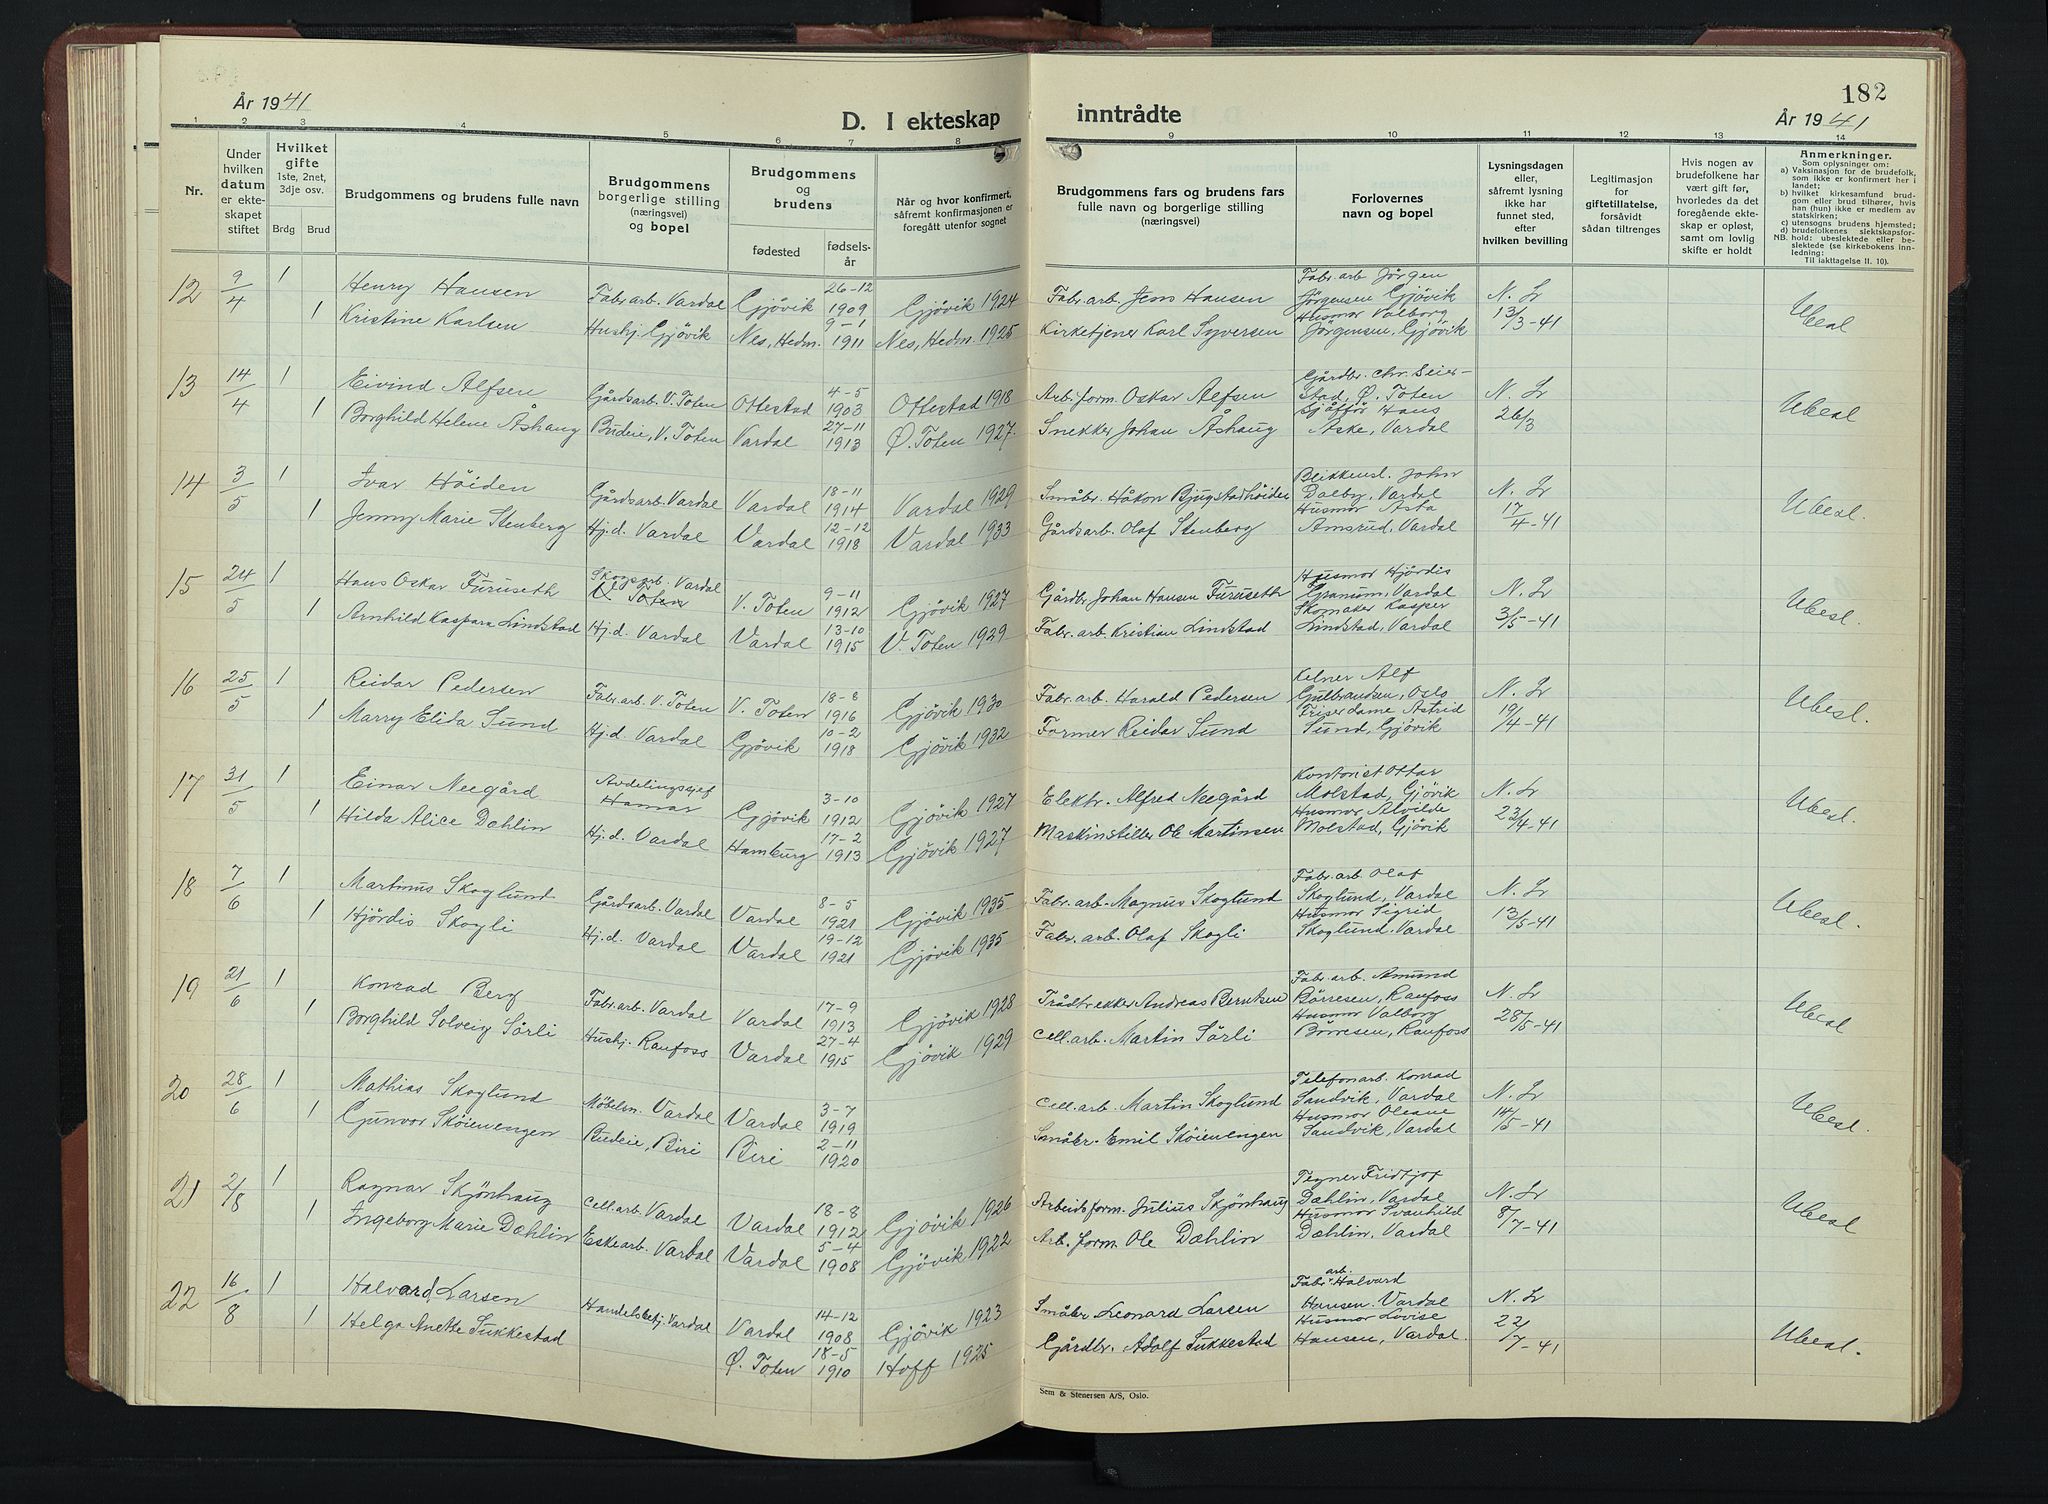 182
År 1941
D. I ekteskap
inntrådte
År 1941
1 2 3 4 5 6 7 8 9 10 11 12 13 14
Nr.
Under
hvilken
datum
er ekte-
skapet
stiftet
Hvilket
gifte
1ste, 2net,
3dje osv.
Brdg Brud
Brudgommens og brudens fulle navn
Brudgommens
borgerlige stilling
(næringsvei)
og bopel
Brudgommens
og
brudens
fødested
fødsels-
år
Når og hvor konfirmert,
såfremt konfirmasjonen er
foregått utenfor sognet
Brudgommens fars og brudens fars
fulle navn og borgerlige stilling
(næringsvei)
Forlovernes
navn og bopel
Lysningsdagen
eller,
såfremt lysning
ikke har
funnet sted,
efter
hvilken bevilling
Legitimasjon
for
giftetillatelse,
forsåvidt
sådan tiltrenges
Hvis nogen av
brudefolkene har
vært gift før,
hvorledes da det
foregående ekte-
skap er opløst,
samt om lovlig
skifte er holdt
Anmerkninger.
Som oplysninger om:
a) Vaksinasjon for de brudefolk,
som ikke er konfirmert her i
landet;
b) hvilket kirkesamfund brud-
gom eller brud tilhører, hvis
han (hun) ikke er medlem av
statskirken;
c) utensogns brudens hjemsted;
d) brudefolkenes slektskapsfor-
NB. hold: ubeslektede eller be-
slektede (se kirkebokens inn-
ledning:
Til iakttagelse II. 10).
12 9/4 1 Henry Hansen Fabr.arb. Vardal Gjövik 26-12 1909 Gjövik 1924 Fabr.arb. Jens Hansen Fabr.arb Jörgen Jörgensen Gjövik N. Lr 13/3-41 Ubesl
1 Kristine Karlsen Hushj. Gjövik Nes, Hedm. 9-1 1911 Nes, Hedm. 1925 Kirketjener Karl Syversen Husmor Valborg Jörgensen, Gjövik
13 14/4 1 Eivind Alfsen Gårdsarb. V. Toten Ottestad 4-5 1903 Ottestad 1918 Arb.form. Oskar Alfsen Gårdbr. Chr. Seier-stad, Ø. Toten N. Lr 26/3 Ubesl
1 Borghild Helene Åshaug Budeie, V. Toten Vardal 27-11 1913 Ø. Toten 1927. Snekker Johan Åshaug Sjåffør Hans Aske, Vardal
14 3/5 1 Ivar Höiden Gårdsarb. Vardal Vardal 18-11 1914 Vardal 1929 Småbr. Håkon Bjugstadhöiden Blikkensl. John Dalby, Vardal N. Lr 17/4-41 Ubesl.
1 Jenny Marie Stenberg Hj.d. Vardal Vardal 12-12 1918 Vardal 1933 Gårdsarb. Olaf Stenberg Husmor Asta Amsrud, Vardal
15 24/5 1 Hans Oskar Furuseth Skogsarb. Vardal V. Toten V. Toten 9-11 1912 Gjövik 1927 Gårdbr. Johan Hansen Furuseth Husmor Hjördis Granum, Vardal N. Lr 3/5-41 Ubesl.
1 Arnhild Kaspara Lindstad Hj.d. Vardal Vardal 13-10 1915 V. Toten 1929 Fabr.arb. Kristian Lindstad Skomaker Kasper Lindstad, Vardal
16 25/5 1 Reidar Pedersen Fabr.arb. V. Toten V. Toten 18-8 1916 Gjövik 1930 Fabr.arb. Harald Pedersen Kelner Alf Gulbrandsen, Oslo N. Lr 19/4-41 Ubesl.
1 Marry Elida Sund Hj.d Vardal Gjövik 10-2 1918 Gjövik 1932 Former Reidar Sund Friserdame Astrid Sund, Gjövik
17 31/5 1 Einar Neegård Avdelingssjef Hamar Gjövik 3-10 1912 Gjövik 1927 Elektr. Alfred Neegård Kontorist Ottar Molstad, Gjövik N. Lr 23/4-41 Ubesl.
1 Hilda Alice Dæhlin Hj.d. Vardal Hamburg 17-2 1913 Gjövik 1927 Maskinstiller Ole Martinsen Husmor Alvilde Molstad, Gjövik
18 7/6 1 Martinus Skoglund Gårdsarb. Vardal Vardal 8-5 1921 Gjövik 1935 Fabr.arb. Magnus Skoglund Fabr.arb. Olaf Skoglund, Vardal N. Lr 13/5-41 Ubesl.
1 Hjördis Skogli Hj.d. Vardal Vardal 19-12 1921 Gjövik 1935 Fabr.arb. Olaf Skogli Husmor Sigrid Skoglund, Vardal
19 21/6 1 Konrad Berg Fabr.arb. Vardal Vardal 17-9 1913 Gjövik 1928 Trådtrekker Andreas Berntsen Fabr.arb. Amund Börresen, Raufoss N. Lr 28/5-41 Ubesl
1 Borghild Solveig Sörli Hushj. Raufoss Vardal 27-4 1915 Gjövik 1929 Cell.arb. Martin Sörli Husmor Valborg Börresen, Raufoss
20 28/6 1 Mathias Skoglund Möbelsn. Vardal Vardal 3-7 1919 Cell.arb. Martin Skoglund Telefonarb. Konrad Sandvik, Vardal N. Lr 14/5-41 Ubesl.
1 Gunvor Sköienengen Budeie, Biri Biri 2-11 1920 Småbr. Emil Sköienengen Husmor Oleane Sandvik, Vardal
21 2/8 1 Ragnar Skjönhaug Cell.arb. Vardal Vardal 18-8 1912 Gjövik 1926 Arbeidsform. Julius Skjönhaug Tegner Fridtjof Dæhlin, Vardal N. Lr 8/7-41 Ubesl
1 Ingeborg Marie Dæhlin Eskearb. Vardal Vardal 5-4 1908 Gjövik 1922 Arb.form. Ole Dæhlin Husmor Svanhild Dæhlin, Vardal
22 16/8 1 Halvard Larsen Handelsbetj. Vardal Vardal 14-12 1908 Gjövik 1923 Småbr. Leonard Larsen Fabr.arb. Halvard Hansen. Vardal N. Lr 22/7-41 Ubesl.
1 Helga Anette Sukkestad Ø. Toten 18-5 1910 Hoff 1925 Gårdbr. Adolf Sukkestad Husmor Lovise Hansen, Vardal.
Sem & Stenersen A/S, Oslo.